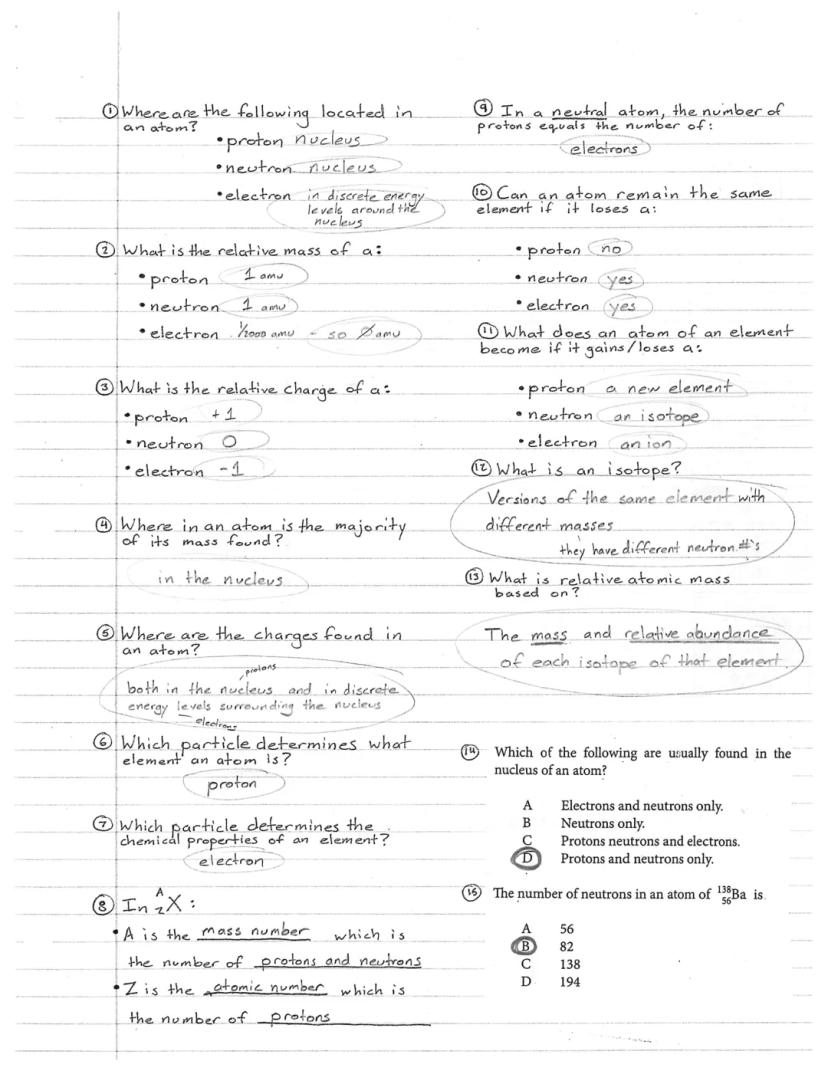 ① Where are the following located in
an atom?
• proton nucleus
• neutron nucleus
• electron in discrete energy
levels around the
nucleus
② What is the relative mass of a:
• proton 1 amu
• neutron 1 amu
• electron 1/2000 amu - so ∅ amu
③ What is the relative charge of a:
• proton +1
• neutron 0
• electron -1
④ Where in an atom is the majority
of its mass found?
in the nucleus
⑤ Where are the charges found in
an atom?
protons
both in the nucleus and in discrete
energy levels surrounding the nucleus
electrons
⑥ Which particle determines what
element an atom is?
proton
⑦ Which particle determines the
chemical properties of an element?
electron
⑧ In ᴬ_Z X :
• A is the mass number which is
the number of protons and neutrons
• Z is the atomic number which is
the number of protons
⑨ In a neutral atom, the number of
protons equals the number of:
electrons
⑩ Can an atom remain the same
element if it loses a:
• proton no
• neutron yes
• electron yes
⑪ What does an atom of an element
become if it gains/loses a:
• proton a new element
• neutron an isotope
• electron an ion
⑫ What is an isotope?
Versions of the same element with
different masses
they have different neutron #'s
⑬ What is relative atomic mass
based on?
The mass and relative abundance
of each isotope of that element.
⑭ Which of the following are usually found in the
nucleus of an atom?
A Electrons and neutrons only.
B Neutrons only.
C Protons neutrons and electrons.
D Protons and neutrons only.
⑮ The number of neutrons in an atom of ¹³⁸₅₆Ba is
A 56
B 82
C 138
D 194